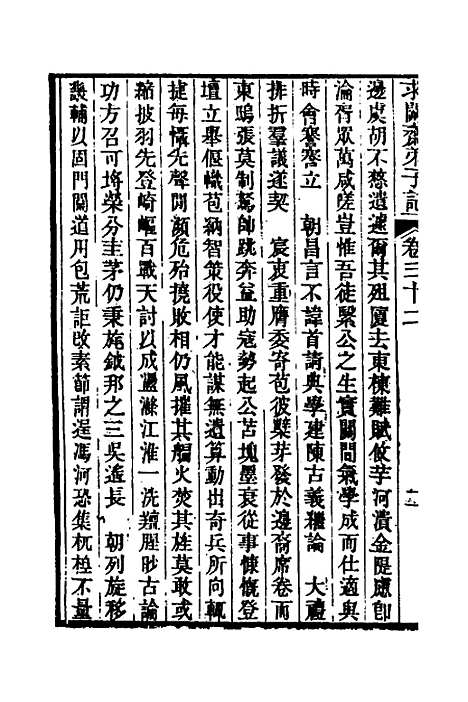 求闕齋弟子記 卷三十二
邊虞胡不憗遺遽爾其殂廈去東棟難賦俊芋河潰金隄應卽
淪胥眾萬咸嗟豈惟吾徒繄公之生實關間氣學成而仕適與
時會謇謇立 朝昌言不諱首請典學建陳古義禮論 大禮
排折羣議遂契 宸衷重膺委寄苞彼櫱芽發於邊裔席卷而
東鴟張莫制駑帥跳奔益助寇勢起公苫塊墨衰從事慷慨登
壇立舉偃幟苞納智策役使才能謀無遺算動出奇兵所向輒
捷每懾先聲間頻危殆撓敗相仍風摧其艫火焚其旌莫敢或
縮披羽先登崎嶇百戰天討以成盪滌江淮一洗羶腥眇古論
功方召可埒榮分圭茅仍秉旄鉞邦之三吳遙長 朝列旋移
畿輔以固門闑道用包荒詎改素節謂逞馮河恐集杌桯不量